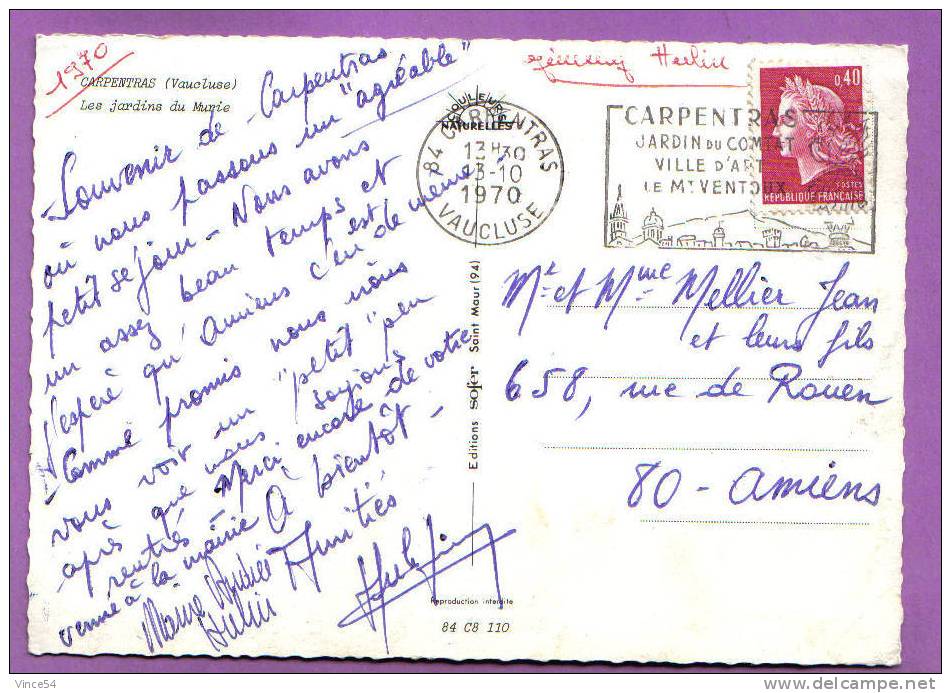 1970
CARPENTRAS (Vaucluse)
Les jardins du Musée
Souvenir de Carpentras
où nous passons un "agréable"
petit séjour - Nous avons
un assez beau temps et
j'espère qu'Amiens c'en est de même
Comme promis nous irons
vous voir un "petit" peu
après que nous soyions
rentrés - Merci encore de votre
venue à la mairie À bientôt -
Amitiés
Herlin
COULEURS
NATURELLES
84 CARPENTRAS
13H30
3-10
1970
VAUCLUSE
CARPENTRAS
JARDIN DU COMTAT
VILLE D'ART
LE MT VENTOUX
0,40
POSTES
REPUBLIQUE FRANÇAISE
Mr et Mme Mellier Jean
et leurs fils
658, rue de Rouen
80 - Amiens
Editions SOFER Saint Maur (94)
Reproduction interdite
84 C8 110
Vince54
www.delcampe.net